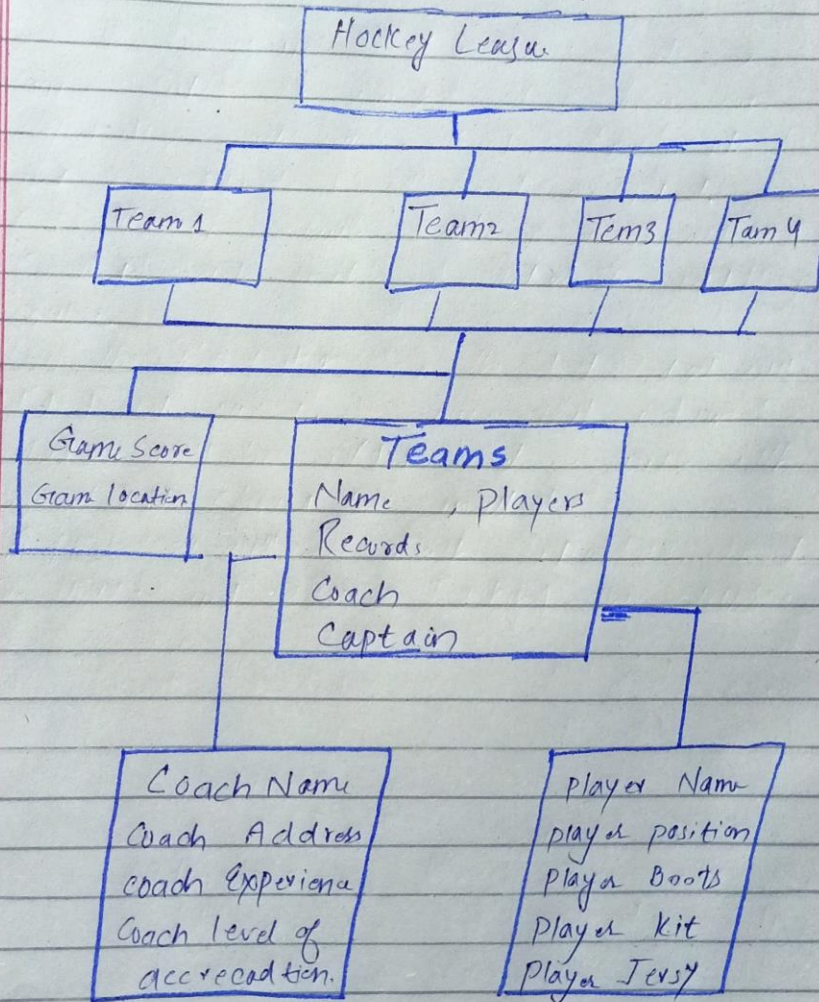 Hockey Leagu
Team 1
Team2
Tem3
Tam 4
Game Score
Gam location
Teams
Name , players
Records
Coach
Captain
Coach Name
Coach Address
coach Experienc
Coach level of
accrecadtion.
player Name
player position
Player Boots
Player Kit
Player Jersy